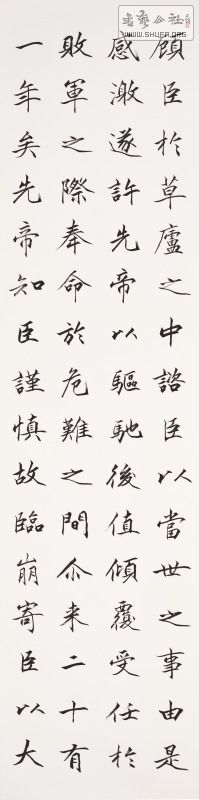 顧臣於草廬之中諮臣以當世之事由是
感激遂許先帝以驅馳後值傾覆受任於
敗軍之際奉命於危難之間尒来二十有
一年矣先帝知臣謹慎故臨崩寄臣以大
書藝公社
WWW.SHUFA.ORG